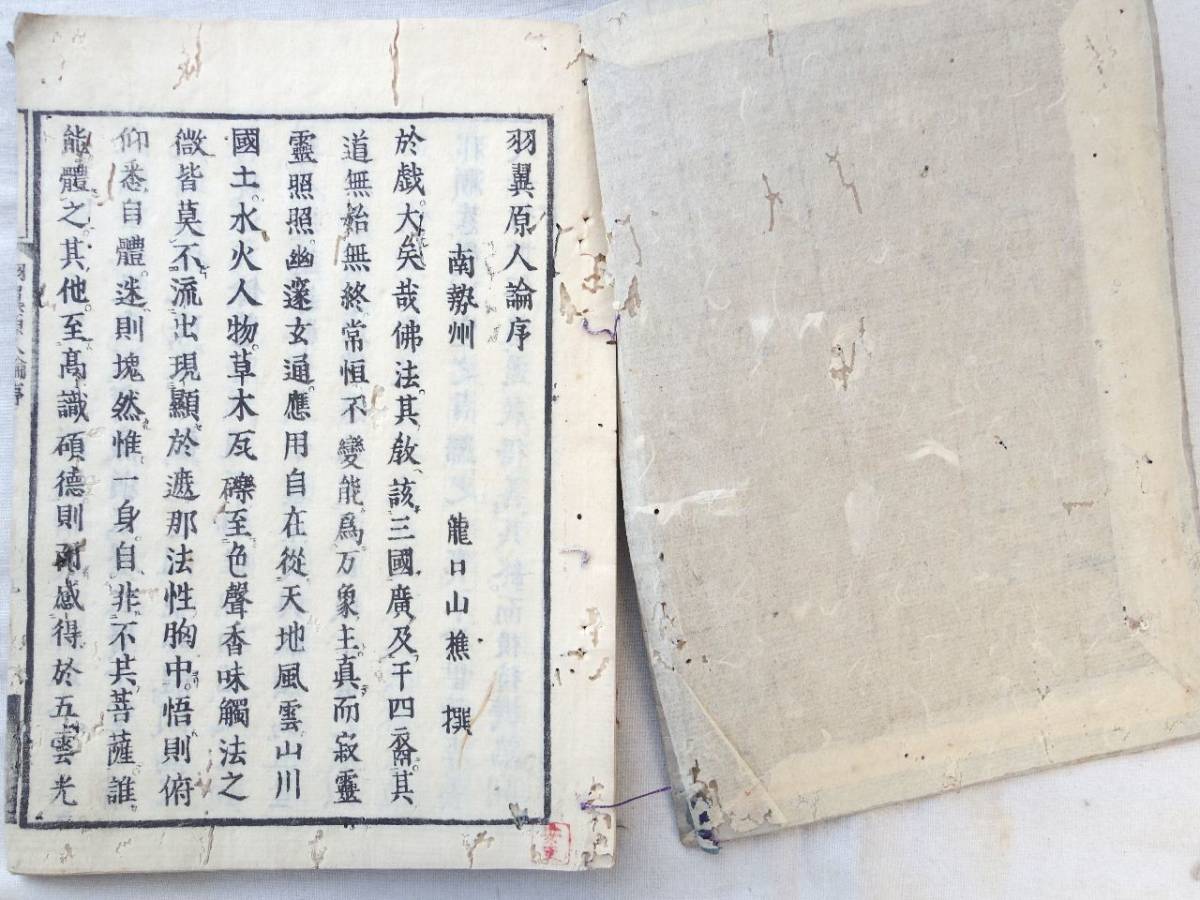 羽翼原人論序
南勢州 龍口山樵 撰
於戯大矣哉佛法其教該三國廣及于四裔其
道無始無終常恒不變能爲万象主真而寂靈
靈照照幽邃玄通應用自在從天地風雲山川
國土水火人物草木瓦礫至色聲香味觸法之
微皆莫不流出現顯於遮那法性胸中悟則俯
仰悉自體迷則塊然惟一身自非不共菩薩誰
能體之其他至髙識碩德則耐感得於五雲光
羽翼原人論序